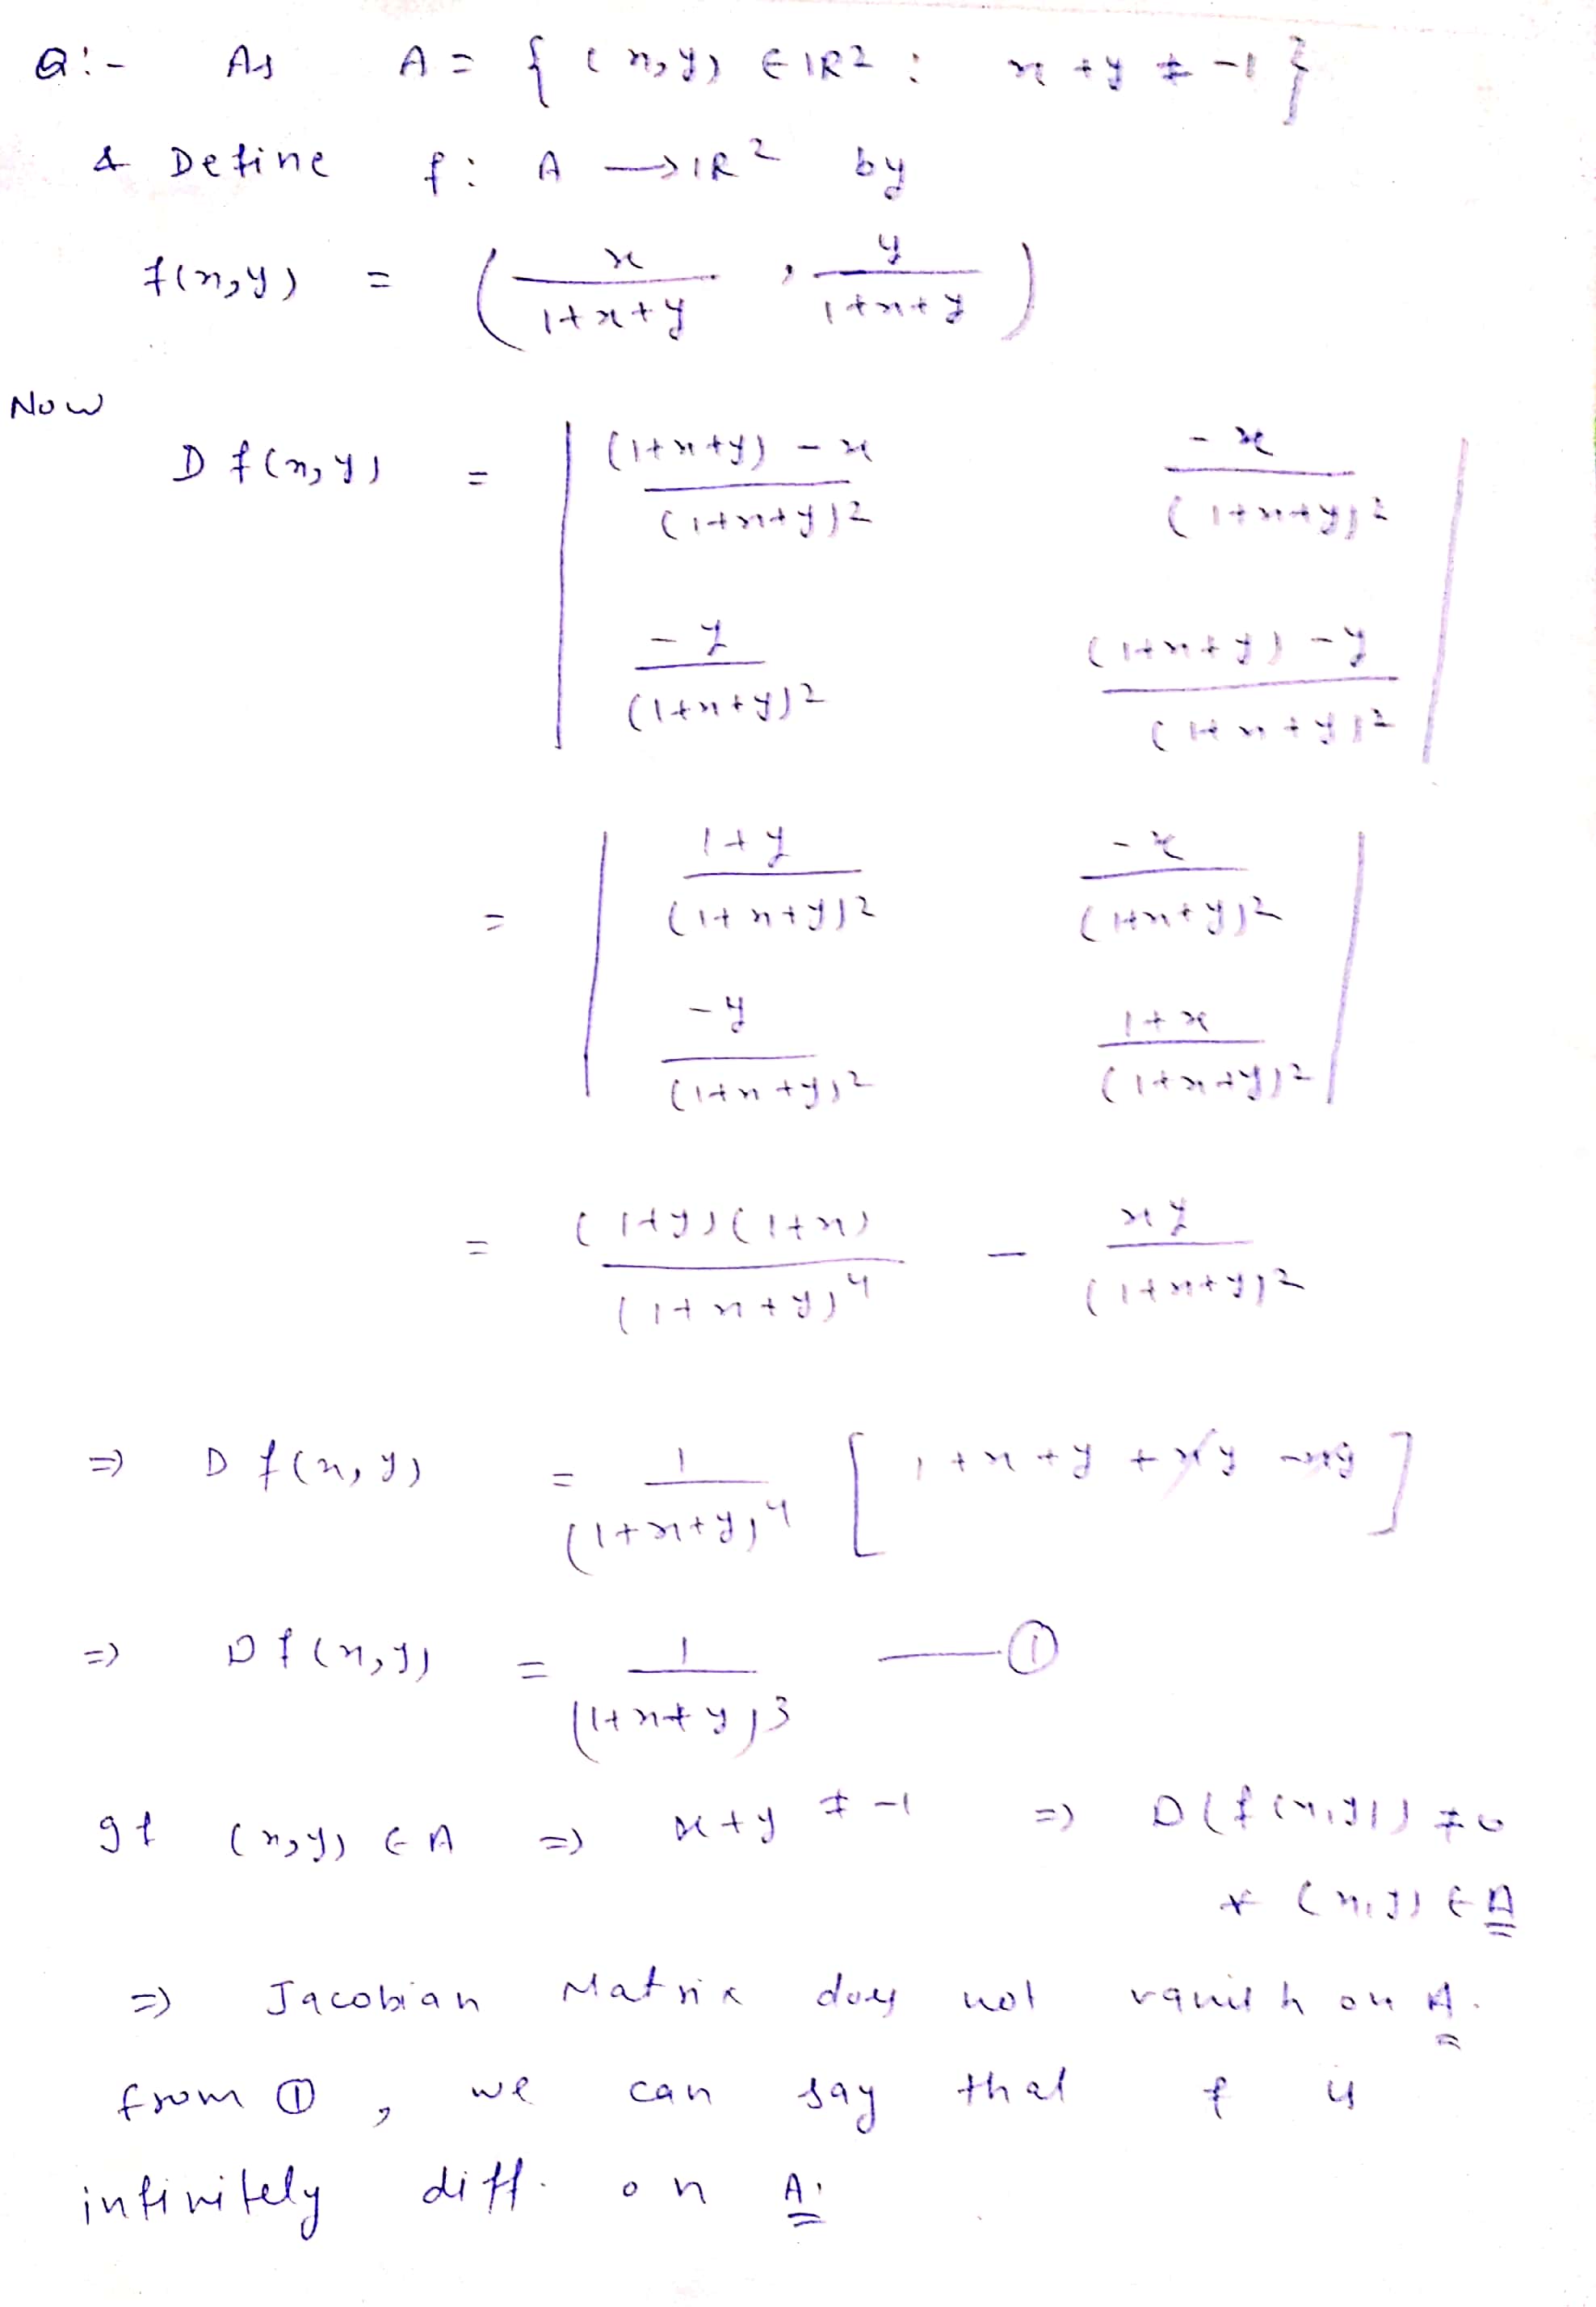 Q:- As A = { (x,y) ∈ IR2 : x + y ≠ -1 }
& Define f: A → IR2 by
f(x,y) = ( x/(1+x+y) , y/(1+x+y) )
Now
D f(x,y) = | ((1+x+y) - x)/(1+x+y)2 -x/(1+x+y)2 |
| -y/(1+x+y)2 ((1+x+y) - y)/(1+x+y)2 |
= | (1+y)/(1+x+y)2 -x/(1+x+y)2 |
| -y/(1+x+y)2 (1+x)/(1+x+y)2 |
= (1+y)(1+x)/(1+x+y)4 - xy/(1+x+y)2
=> D f(x,y) = 1/(1+x+y)4 [ 1+x+y+xy-xy ]
=> D f(x,y) = 1/(1+x+y)3 —— ①
If (x,y) ∈ A => x+y ≠ -1 => D(f(x,y)) ≠ 0
∀ (x,y) ∈ A
=> Jacobian Matrix does not vanish on A.
from ①, we can say that f is
infinitely diff. on A.